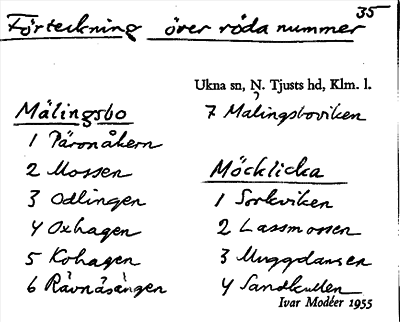 35
Förteckning över röda nummer
Ukna sn, N. Tjusts hd, Klm. l.
Mälingsbo
1 Päronåkern
2 Mossen
3 Odlingen
4 Oxhagen
5 Kohagen
6 Rävnäsängen
7 Malingsboviken
Möcklicka
1 Sorkviken
2 Lassmossen
3 Muggdansen
4 Sandkullen
Ivar Modéer 1955